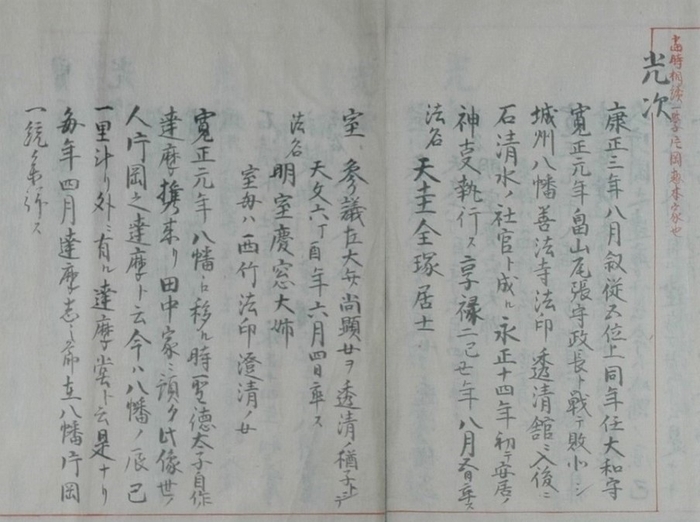 光次
康正三年八月叙従五位上同年任大和守
寛正元年畠山尾張守政長ト戦テ敗北シ
城州八幡善法寺法印透清舘ニ入後ニ
石清水ノ社官ト成ル永正十四年初テ安居ノ
神支執行ス享禄二己丑年八月 卒ス
法名 天圭全琢居士
室、参議左大弁尚顕女ヲ透清ノ猶子トシテ
天文六丁酉年六月四日卒ス
法名 明室慶窓大姉
室母ハ西竹法印澄清ノ女
寛正元年八幡ニ移ル時聖徳太子自作
達摩携来リ田中家ニ預ク此像世ノ
人片岡之達摩ト云今ハ八幡ノ辰巳
一里斗リ外ニ有ル達摩堂ト云是ナリ
毎年四月達摩 在八幡片岡
一統